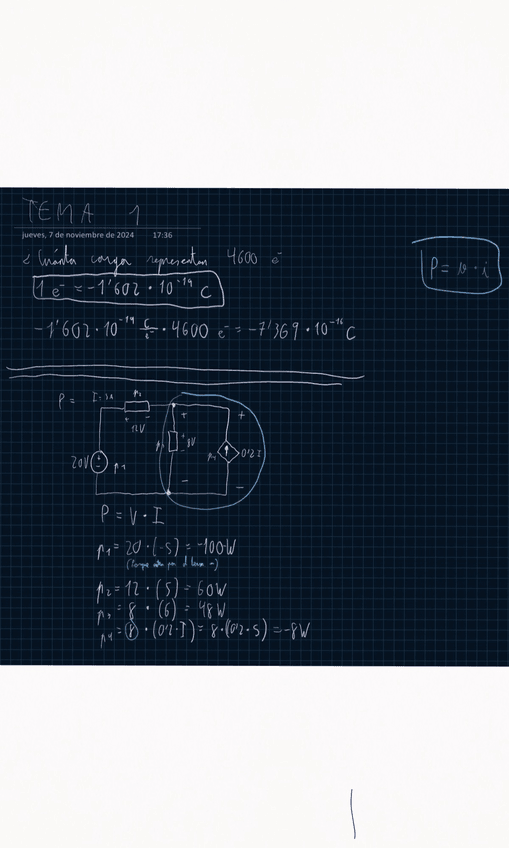 TEMA 1
jueves, 7 de noviembre de 2024 17:36
¿ Cuánta carga representan 4600 e⁻
1 e⁻ = -1'602 · 10⁻¹⁹ C
P = v · i
-1'602 · 10⁻¹⁹ C/e⁻ · 4600 e⁻ = -7'369 · 10⁻¹⁶ C
P = I=5A P₂
+ 12V -
+ +
20V + - P₁ + 8V - P₄ 0'2 I
- -
P = V · I
P₁ = 20 · (-5) = -100W
P₂ = 12 · (5) = 60W
P₃ = 8 · (6) = 48W
P₄ = 8 · (0'2 · I) = 8 · (0'2 · 5) = -8W